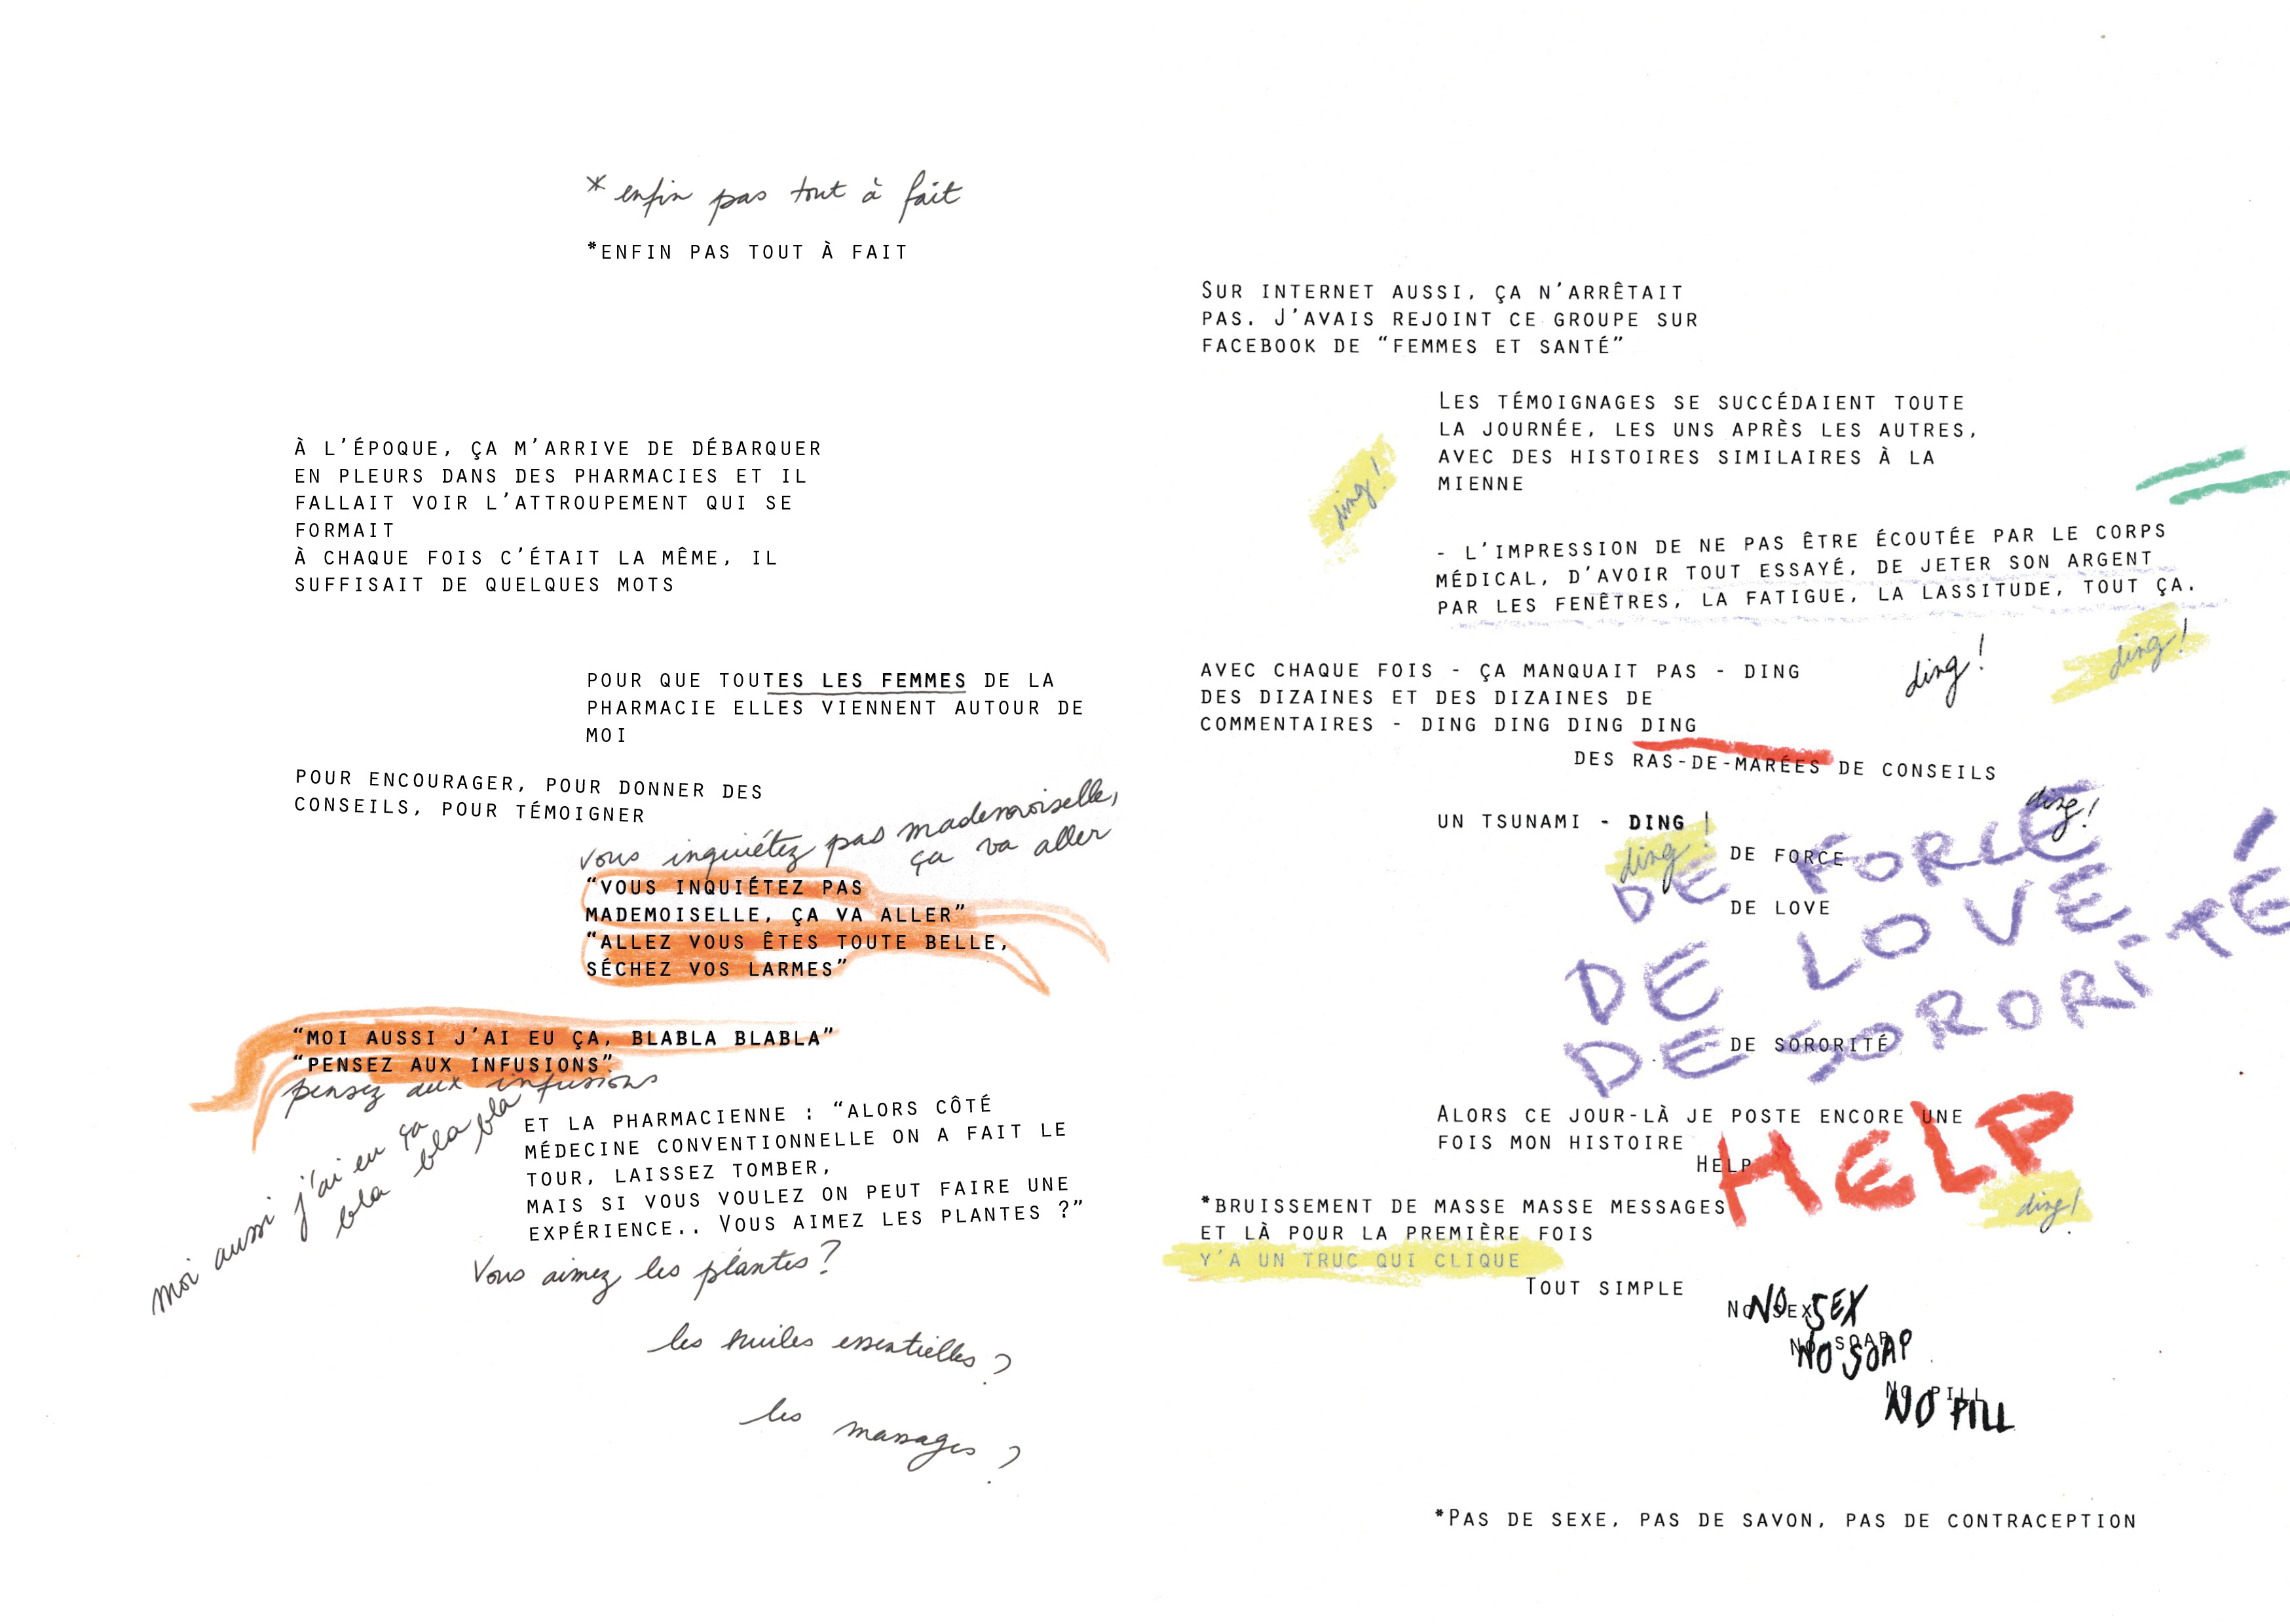 * enfin pas tout à fait
*ENFIN PAS TOUT À FAIT
À L'ÉPOQUE, ÇA M'ARRIVE DE DÉBARQUER
EN PLEURS DANS DES PHARMACIES ET IL
FALLAIT VOIR L'ATTROUPEMENT QUI SE
FORMAIT
À CHAQUE FOIS C'ÉTAIT LA MÊME, IL
SUFFISAIT DE QUELQUES MOTS
POUR QUE TOUTES LES FEMMES DE LA
PHARMACIE ELLES VIENNENT AUTOUR DE
MOI
POUR ENCOURAGER, POUR DONNER DES
CONSEILS, POUR TÉMOIGNER
vous inquiétez pas mademoiselle,
ça va aller
"VOUS INQUIÉTEZ PAS
MADEMOISELLE, ÇA VA ALLER"
"ALLEZ VOUS ÊTES TOUTE BELLE,
SÉCHEZ VOS LARMES"
"MOI AUSSI J'AI EU ÇA, BLABLA BLABLA"
"PENSEZ AUX INFUSIONS"
pensez aux infusions
moi aussi j'ai eu ça
bla bla bla
ET LA PHARMACIENNE : "ALORS CÔTÉ
MÉDECINE CONVENTIONNELLE ON A FAIT LE
TOUR, LAISSEZ TOMBER,
MAIS SI VOUS VOULEZ ON PEUT FAIRE UNE
EXPÉRIENCE.. VOUS AIMEZ LES PLANTES ?"
Vous aimez les plantes ?
les huiles essentielles ?
les massages ?
SUR INTERNET AUSSI, ÇA N'ARRÊTAIT
PAS. J'AVAIS REJOINT CE GROUPE SUR
FACEBOOK DE "FEMMES ET SANTÉ"
LES TÉMOIGNAGES SE SUCCÉDAIENT TOUTE
LA JOURNÉE, LES UNS APRÈS LES AUTRES,
AVEC DES HISTOIRES SIMILAIRES À LA
MIENNE
ding !
- L'IMPRESSION DE NE PAS ÊTRE ÉCOUTÉE PAR LE CORPS
MÉDICAL, D'AVOIR TOUT ESSAYÉ, DE JETER SON ARGENT
PAR LES FENÊTRES, LA FATIGUE, LA LASSITUDE, TOUT ÇA.
ding !
ding !
AVEC CHAQUE FOIS - ÇA MANQUAIT PAS - DING
DES DIZAINES ET DES DIZAINES DE
COMMENTAIRES - DING DING DING DING
DES RAS-DE-MARÉES DE CONSEILS
ding !
UN TSUNAMI - DING !
ding !
DE FORCE
DE FORCE
DE LOVE
DE LOVE
DE SORORITÉ
DE SORORITÉ !
ALORS CE JOUR-LÀ JE POSTE ENCORE UNE
FOIS MON HISTOIRE
HELP
HELP
ding !
*BRUISSEMENT DE MASSE MASSE MESSAGES
ET LÀ POUR LA PREMIÈRE FOIS
Y'A UN TRUC QUI CLIQUE
TOUT SIMPLE
NO SEX
NO SEX
NO SOAP
NO SOAP
NO PILL
NO PILL
*PAS DE SEXE, PAS DE SAVON, PAS DE CONTRACEPTION